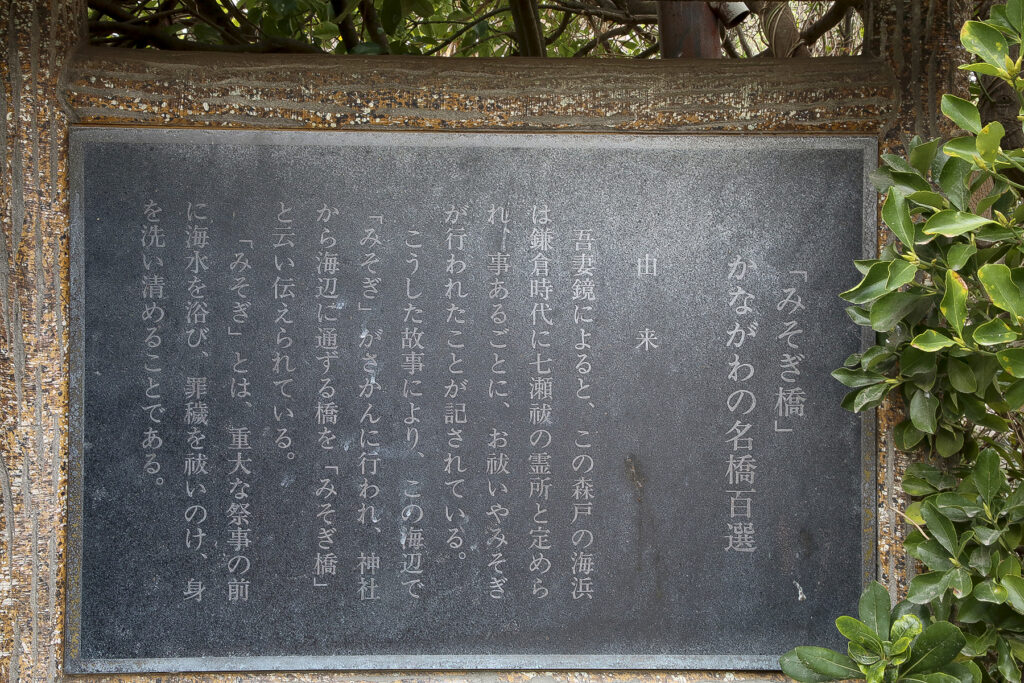 「みそぎ橋」
かながわの名橋百選
由来
吾妻鏡によると、この森戸の海浜
は鎌倉時代に七瀬祓の霊所と定めら
れ、事あるごとに、お祓いやみそぎ
が行われたことが記されている。
こうした故事により、この海辺で
「みそぎ」がさかんに行われ、神社
から海辺に通ずる橋を「みそぎ橋」
と云い伝えられている。
「みそぎ」とは、重大な祭事の前
に海水を浴び、罪穢を祓いのけ、身
を洗い清めることである。